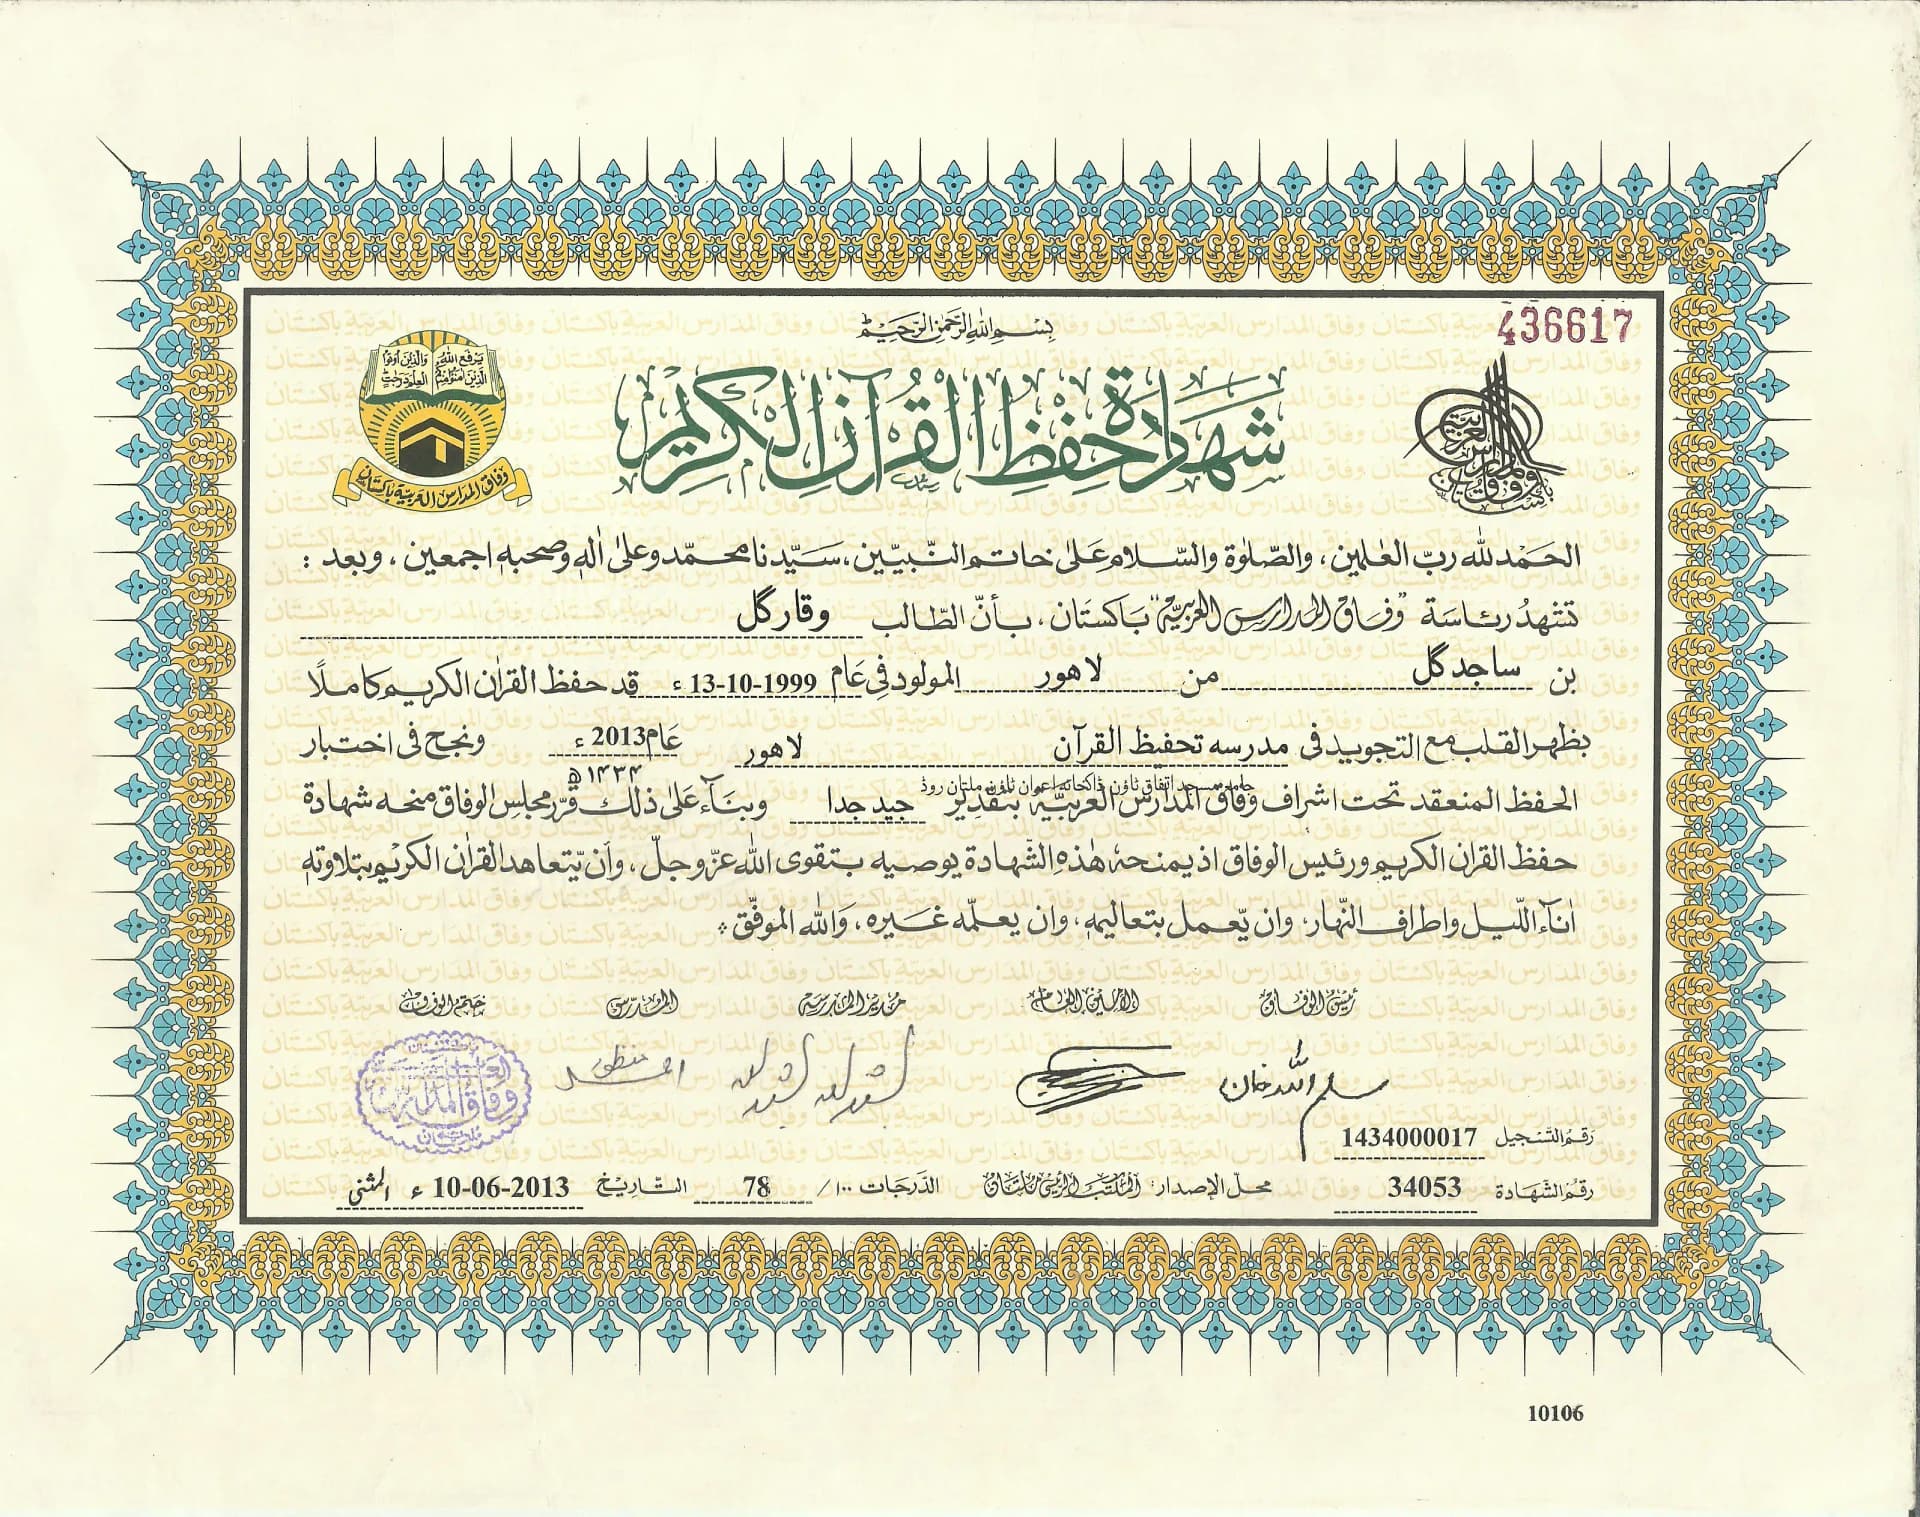 بسم الله الرحمن الرحيم
436617
يرفع الله الذين امنوا منكم والذين اوتوا العلم درجت
وفاق المدارس العربية باكستان
شهادة حفظ القرآن الكريم
وفاق المدارس العربية باكستان
الحمد لله رب العلمين، والصلوة والسلام على خاتم النبيين، سيدنا محمد وعلى اله وصحبه اجمعين، وبعد :
تشهد رئاسة "وفاق المدارس العربية" باكستان، بأن الطالب وقار گل
بن ساجد گل من لاهور المولود في عام 13-10-1999 ء قد حفظ القران الكريم كاملاً
بظهر القلب مع التجويد في مدرسه تحفيظ القرآن لاهور عام 2013 ء ونجح في اختبار
جامع مسجد اتفاق ٹاؤن ڈاکخانہ اعوان ٹاؤن ملتان روڈ
۱۴۳۴ھ
الحفظ المنعقد تحت اشراف وفاق المدارس العربية بتقدير جيد جدا وبناء على ذلك قرر مجلس الوفاق منحه شهادة
حفظ القران الكريم ورئيس الوفاق اذ يمنحه هذه الشهادة يوصيه بتقوى الله عز وجل، وأن يتعاهد القران الكريم بتلاوته
اناء الليل واطراف النهار، وان يعمل بتعاليمه، وان يعلمه غيره، والله الموفق
رئيس الوفاق الامين العام مدير المدرسة المدرس ختم الوفاق
سليم الله خان
منظور احمد
وفاق المدارس العربية
ملتان
رقم التسجيل 1434000017
رقم الشهادة 34053 محل الإصدار: المكتب الرئيسي ملتان الدرجات ۱۰۰/ 78 التاريخ 10-06-2013 ء المثنى
10106